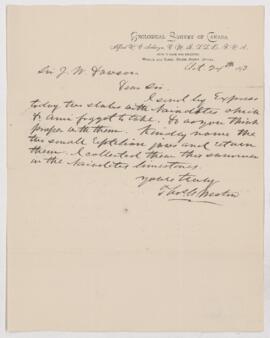 GEOLOGICAL SURVEY OF CANADA
Alfred R. C. Selwyn, C.M.G., LL.D., F.R.S.
Oct. 24th 93
Sir J. W. Dawson
Dear Sir.
I send by Express
today two slabs with Naiadites which
Dr Ami forgot to take. Do as you think
proper with them. Kindly name the
two small reptilian jaws and return
them. I collected them this summer
in the Naiadites limestones.
Yours truly
Thos. C. Weston